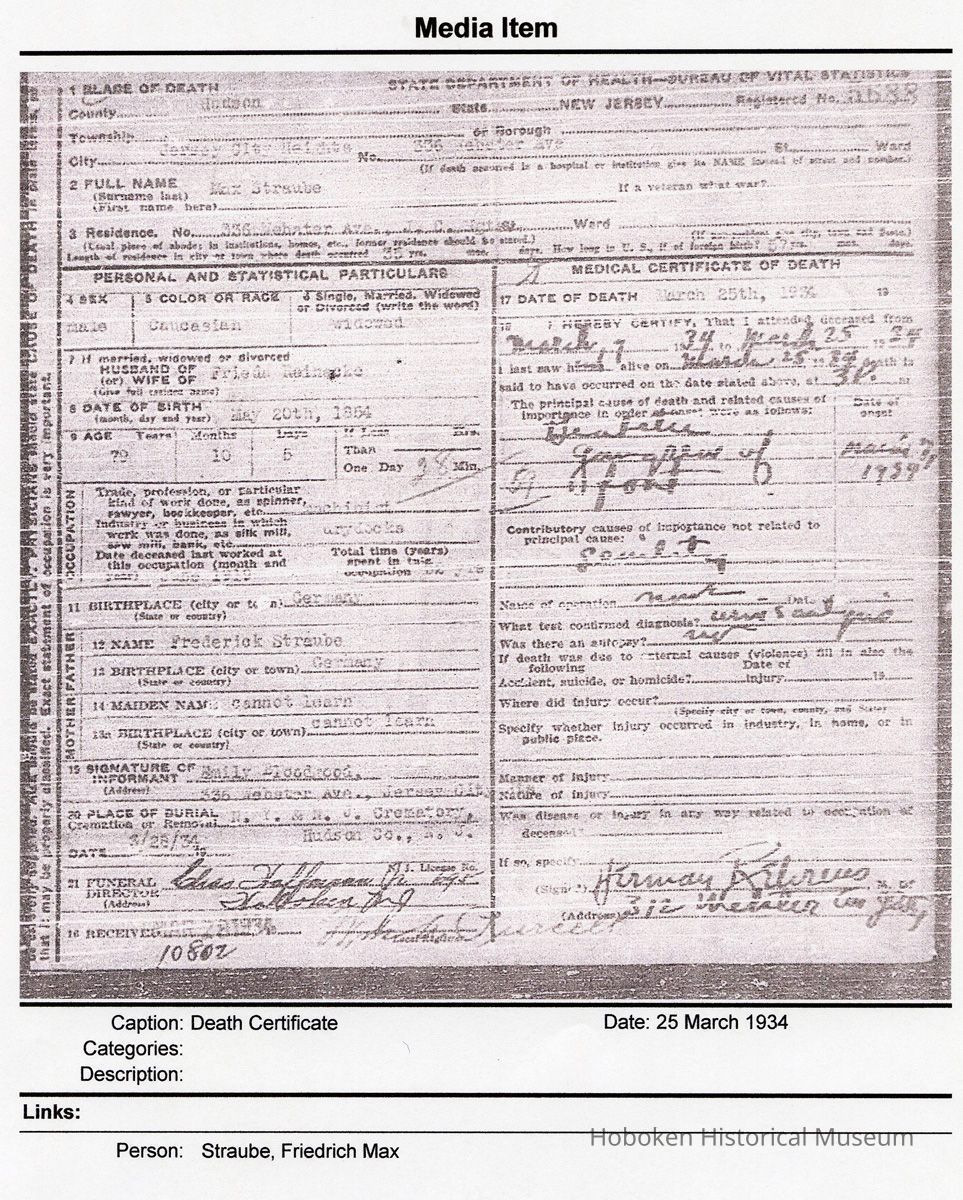 Media Item
STATE DEPARTMENT OF HEALTH—BUREAU OF VITAL STATISTICS
1 PLACE OF DEATH
County Hudson State NEW JERSEY Registered No.
Township or Borough
City Jersey City Heights No. 336 Webster Ave St. Ward
(If death occurred in a hospital or institution give its NAME instead of street and number.)
2 FULL NAME Max Straube If a veteran what war?
(Surname last)
(First name here)
3 Residence. No. 336 Webster Ave. Ward
(If non-resident give city, town and State.)
(Usual place of abode; in institutions, homes, etc., former residence should be stated.)
Length of residence in city or town where death occurred 35 yrs. mos. days. How long in U. S., if of foreign birth? 57 yrs. mos. days.
PERSONAL AND STATISTICAL PARTICULARS
4 SEX 5 COLOR OR RACE 6 Single, Married, Widowed
or Divorced (write the word)
male Caucasian Widowed
7 If married, widowed or divorced
HUSBAND OF Frieda Reinecke
(or) WIFE OF
(Give full maiden name)
8 DATE OF BIRTH May 20th, 1854
(month, day and year)
9 AGE Years Months Days If Less Hrs.
Than
79 10 5 One Day Min.
OCCUPATION
Trade, profession, or particular
kind of work done, as spinner,
sawyer, bookkeeper, etc. machinist
Industry or business in which
work was done, as silk mill,
saw mill, bank, etc. drydocks
Date deceased last worked at
this occupation (month and
year)
Total time (years)
spent in this
occupation
11 BIRTHPLACE (city or town) Germany
(State or country)
FATHER
12 NAME Frederick Straube
13 BIRTHPLACE (city or town) Germany
(State or country)
MOTHER
14 MAIDEN NAME cannot learn
cannot learn
13a BIRTHPLACE (city or town)
(State or country)
15 SIGNATURE OF
INFORMANT Emily Bloodgood,
(Address) 336 Webster Ave., Jersey City
20 PLACE OF BURIAL N. Y. & N. J. Crematory,
Cremation or Removal Hudson Co., N. J.
DATE 3/28/34 19
21 FUNERAL
DIRECTOR Chas Hoffmann Jr
N. J. License No.
(Address) Hoboken NJ
16 RECEIVED
Local Registrar
10802
MEDICAL CERTIFICATE OF DEATH
17 DATE OF DEATH March 25th, 1934 19
18 I HEREBY CERTIFY, That I attended deceased from
March, 7 1934 to March 25 1934
I last saw him alive on March 25 1934 death is
said to have occurred on the date stated above, at m
The principal cause of death and related causes of
importance in order of onset were as follows:
Date of
onset
Diabetes
Gangrene of
foot
59
1934
Contributory causes of importance not related to
principal cause:
Senility
Name of operation none Date of
What test confirmed diagnosis?
Was there an autopsy? no
If death was due to external causes (violence) fill in also the
following
Accident, suicide, or homicide? Date of
injury 19
Where did injury occur?
(Specify city or town, county, and State)
Specify whether injury occurred in industry, in home, or in
public place.
Manner of injury
Nature of injury
Was disease or injury in any way related to occupation of
deceased?
If so, specify
(Signed) Herman M. D.
(Address) 312 Webster
Caption: Death Certificate
Date: 25 March 1934
Categories:
Description:
Links:
Hoboken Historical Museum
Person: Straube, Friedrich Max